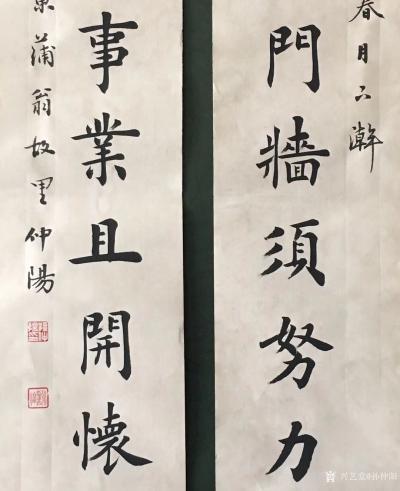 春月下澣
門牆須努力
事業且開懷
蒲翁故里仲陽
兴艺堂@孙仲阳